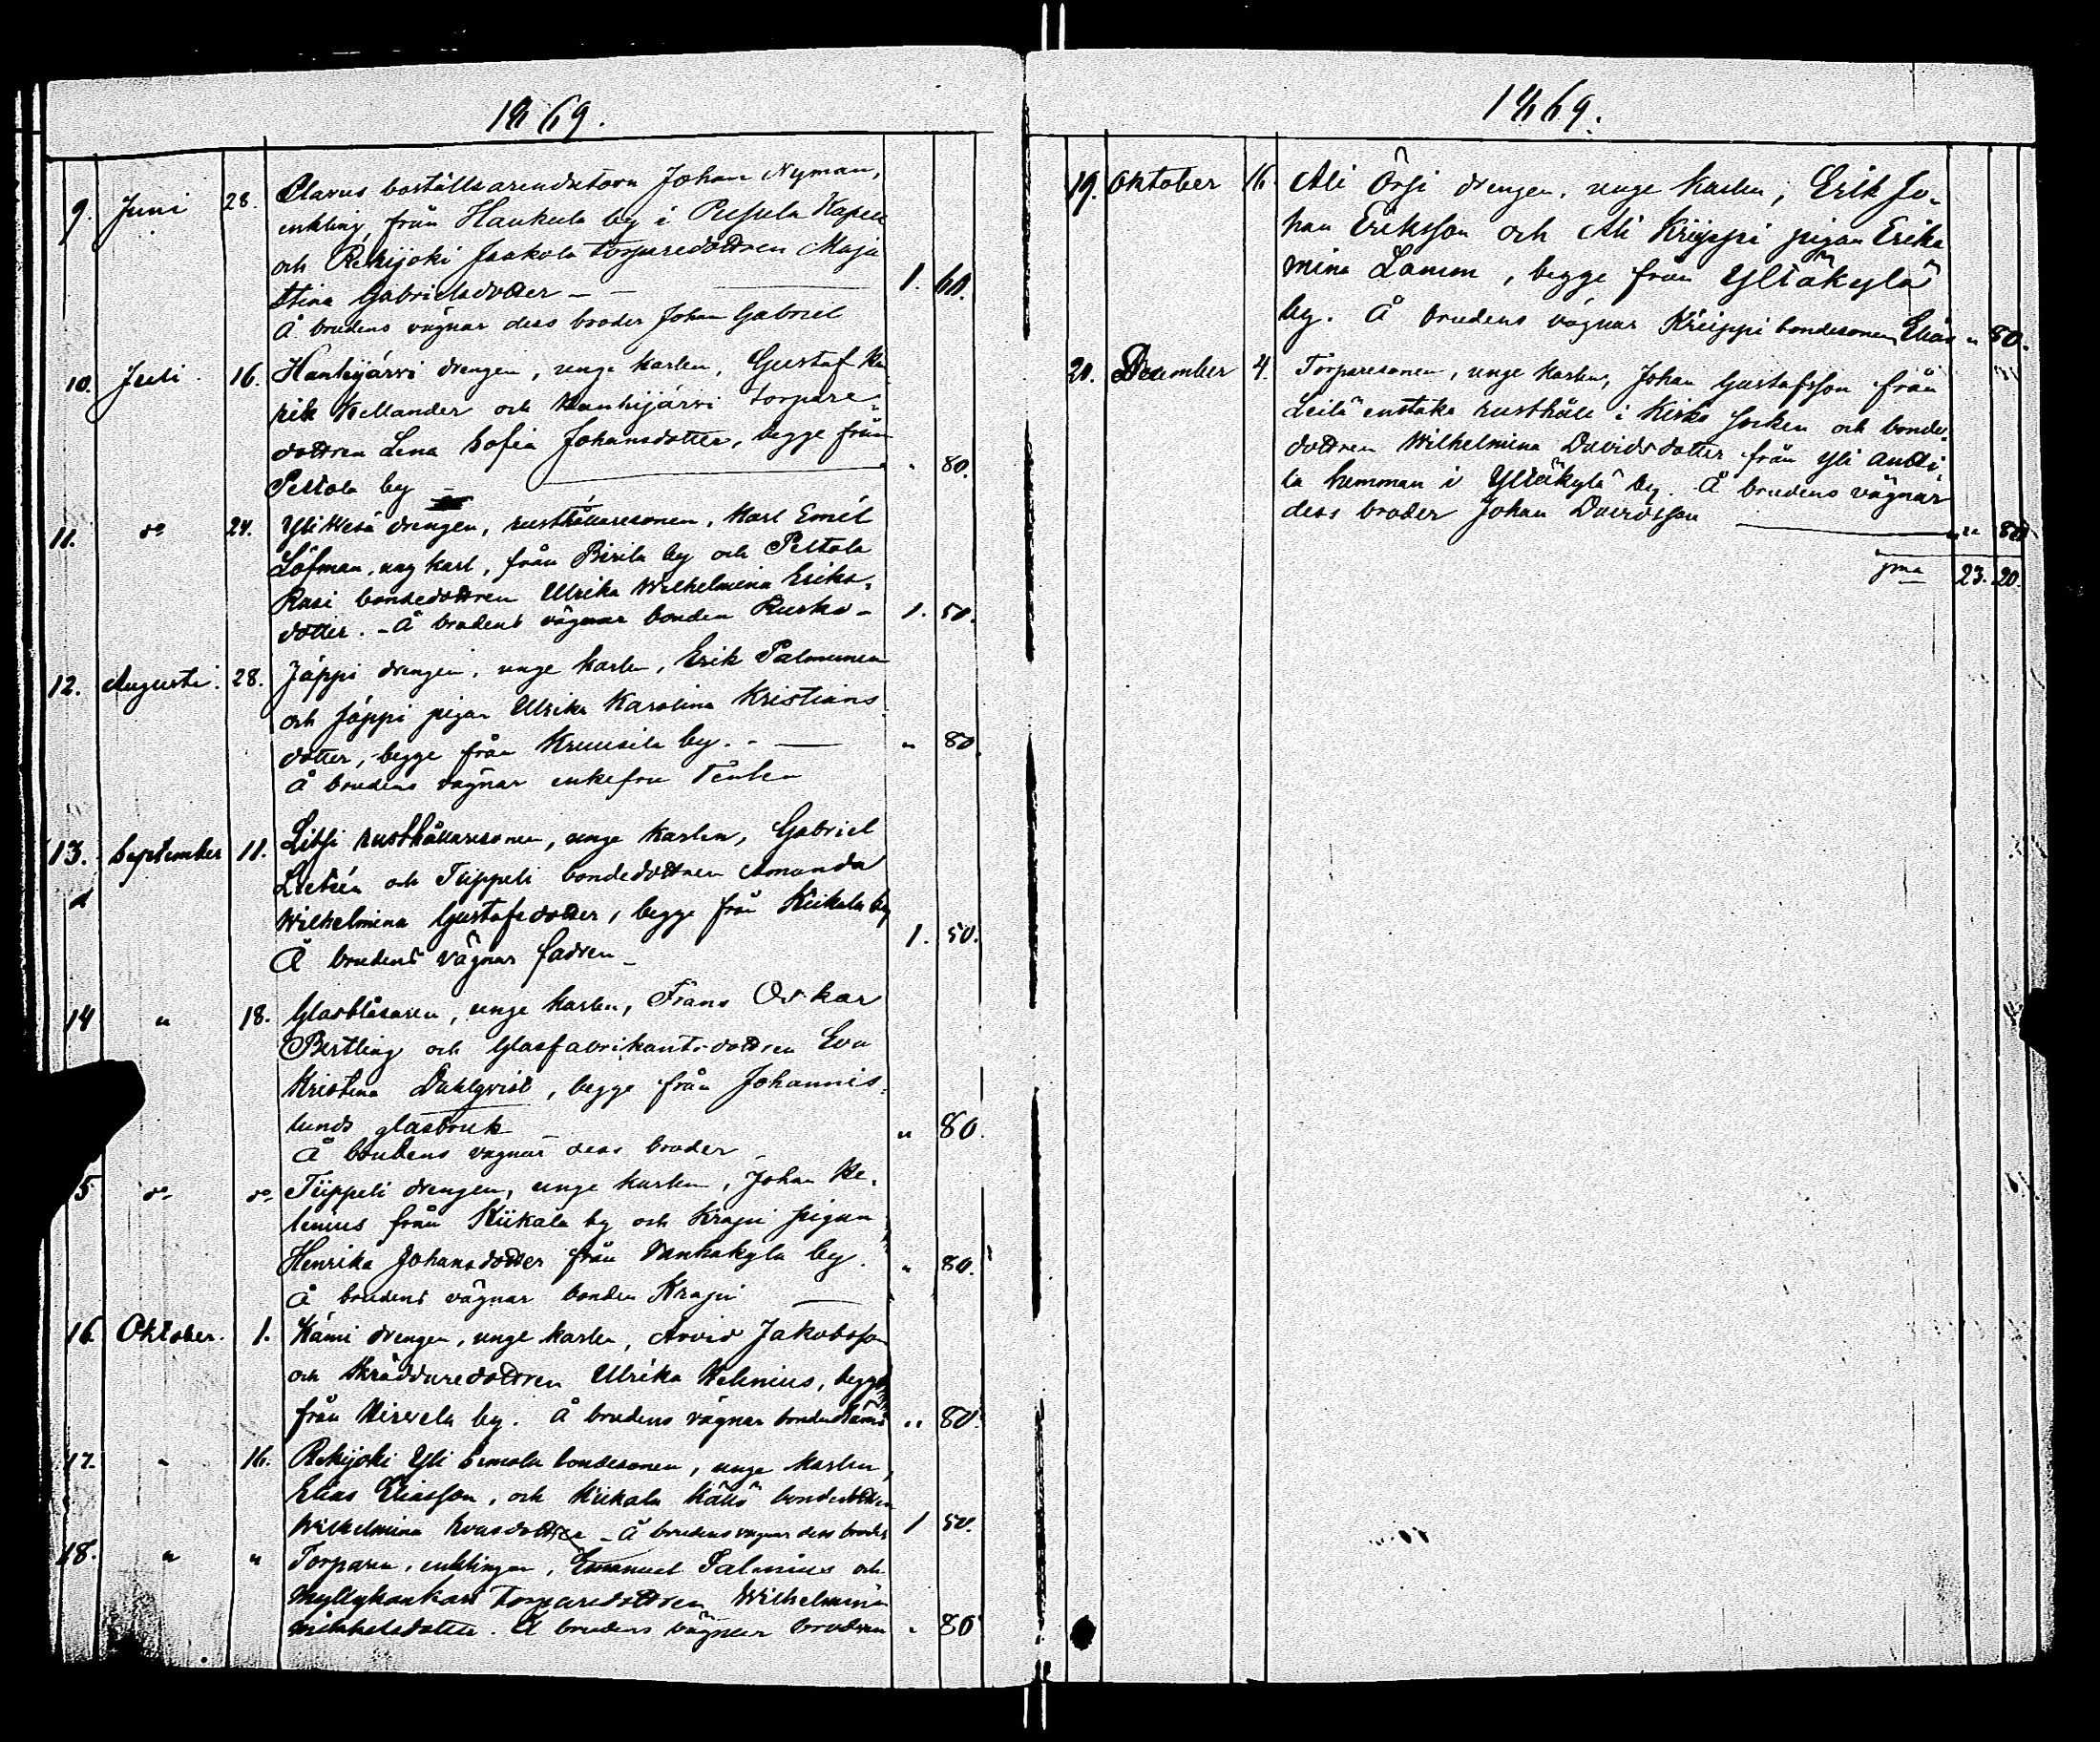 1869.
9. Juni 28. Olavus boställsarendatorn Johan Nyman,
enkling, från Haukula by i Pusula Kapell
och Rekijoki Jaakola torparedottren Maja
Stina Gabrielsdotter — 1. 60.
Å brudens vägnar dess broder Johan Gabriel
10. Juli 16. Hanhijärvi drengen, unge karlen, Gustaf
Kellander och Hanhijärvi torpare-
dottren Lena Sofia Johansdotter, begge från
Peltola by — " 80.
11. do 24. Yli Kesä drengen, rusthållaresonen, Karl Emil
Löfman, ung karl, från by och Peltola
Rasi bondedottren Ulrika Wilhelmina Eriks-
dotter. – Å brudens vägnar bonden – 1. 50.
12. Augusti. 28. Jäppi drengen, unge karlen, Erik Palmunen
och Jäppi pigan Ulrika Karolina Kristians
dotter, begge från Kruusila by. – " 80.
Å brudens vägnar enkefru
13. September 11. rusthållaresonen, unge karlen, Gabriel
och Tiippeli bondedottren Amanda
Wilhelmina Gustafsdotter, begge från Kiikala by
Å brudens vägnar fadren – 1. 50.
14 " 18. Glasblåsaren, unge karlen, Frans Oskar
Bertling och Glasfabrikantsdottren Eva
Kristina Dahlqvist, begge från Johannis-
lunds glasbruk " 80.
Å brudens vägnar dess broder
5 do do Tiippeli drengen, unge karlen, Johan He-
lenius från Kiikala by och Krapi pigan
Henrika Johansdotter från Vanhakylä by. " 80.
Å brudens vägnar bonden Krapi —
16. Oktober. 1. Kämi drengen, unge karlen, Arvid Jakobsson
och Skräddaredottren Ulrika Helenius, begge
från Hirvelä by. Å brudens vägnar bonden Kämi " 80.
17. " 16. Rekijoki Yli Simola bondesonen, unge karlen,
Elias Eliasson, och Kiikala bondedottren
Wilhelmina – Å brudens vägnar dess broder 1 50.
18. " " Torparen, enklingen, Emanuel Salenius och
Myllyhankan Torparedottren Wilhelmina
Mikkelsdotter. Å brudens vägnar brodren " 80
1869.
19. Oktober 16. Ali Örsi drengen, unge karlen, Erik Jo-
han Eriksson och Ali Kriippi pigan Erika
mina begge från Yltäkylä
by. Å brudens vägnar Kriippi bondesonen Elias " 80.
20. December 4. Torparesonen, unge karlen, Johan Gustafsson från
Leilä enstaka rusthåll i Kisko socken och bonde-
dottren Wilhelmina Davidsdotter från Yli Antti-
la hemman i Yltäkylä by. Å brudens vägnar
dess broder Johan Davidsson — " 80
Sma 23. 20.